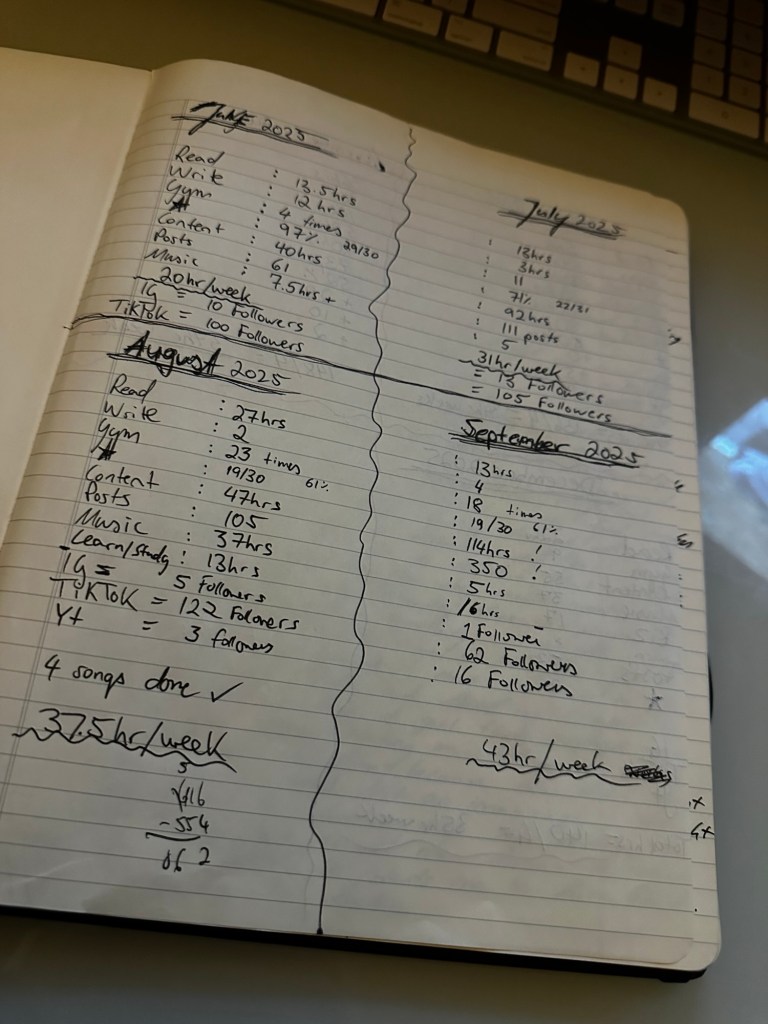 June 2025
Read : 13.5hrs
Write : 12 hrs
Gym : 4 times
: 97% 29/30
Content : 40hrs
Posts : 61
Music : 7.5hrs +
20hr/week
IG = 10 Followers
TikTok = 100 Followers
July 2025
: 13hrs
: 3hrs
: 11
: 71% 22/31
: 92hrs
: 111 posts
: 5
31hr/week
= 13 Followers
= 105 Followers
August 2025
Read : 27hrs
Write : 2
Gym : 23 times
: 19/30 61%
Content : 47hrs
Posts : 105
Music : 37hrs
Learn/study : 13hrs
IG = 5 Followers
TikTok = 122 Followers
Yt = 3 followers
4 songs done ✓
37.5hr/week
5
616
-554
062
September 2025
: 13hrs
: 4
: 18 times
: 19/30 61%
: 114hrs !
: 350 !
: 5hrs
: 16hrs
: 1 Follower
: 62 Followers
: 16 Followers
43hr/week